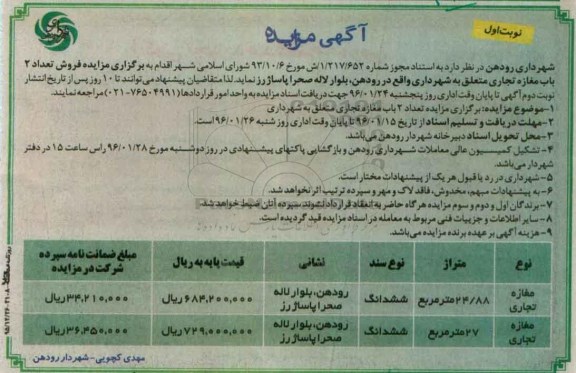 نوبت اول
آگهی مزایده
شهرداری رودهن در نظر دارد به استناد مجوز شماره ۱/۲۱۷/۶۵۲/ش مورخ ۹۳/۱۰/۶ شورای اسلامی شهر اقدام به برگزاری مزایده فروش تعداد ۲
باب مغازه تجاری متعلق به شهرداری واقع در رودهن، بلوار لاله صحرا پاساژ رز نماید. لذا متقاضیان پیشنهاد می‌توانند تا ۱۰ روز پس از تاریخ انتشار
نوبت دوم آگهی تا پایان وقت اداری روز پنجشنبه ۹۶/۰۱/۲۴ جهت دریافت اسناد مزایده به واحد امور قراردادها (۷۶۵۰۴۹۹۱-۰۲۱) مراجعه نمایند.
۱-موضوع مزایده: برگزاری مزایده تعداد ۲ باب مغازه تجاری متعلق به شهرداری
۲-مهلت دریافت و تسلیم اسناد از تاریخ ۹۶/۰۱/۱۵ تا پایان وقت اداری روز شنبه ۹۶/۰۱/۲۶ است.
۳-محل تحویل اسناد دبیرخانه شهردار رودهن می‌باشد.
۴- تشکیل کمیسیون عالی معاملات شهرداری رودهن و بازگشایی پاکتهای پیشنهادی در روز دوشنبه مورخ ۹۶/۰۱/۲۸ راس ساعت ۱۵ در دفتر
شهردار می‌باشد.
۵- شهرداری در رد یا قبول هر یک از پیشنهادات مختار است.
۶- به پیشنهادات مبهم، مخدوش، فاقد لاک و مهر و سپرده ترتیب اثر نخواهد شد.
۷- برندگان اول و دوم و سوم مزایده هرگاه حاضر به انعقاد قرارداد نشوند سپرده آنان ضبط خواهد شد.
۸- سایر اطلاعات و جزییات فنی مربوط به معامله در اسناد مزایده قید گردیده است.
۹- هزینه آگهی بر عهده برنده مزایده می‌باشد.
نوع متراژ نوع سند نشانی قیمت پایه به ریال مبلغ ضمانت نامه سپرده شرکت در مزایده
مغازه تجاری ۲۴/۸۸مترمربع ششدانگ رودهن، بلوار لاله صحرا پاساژ رز ۶۸۴,۲۰۰,۰۰۰ریال ۳۴,۲۱۰,۰۰۰ریال
مغازه تجاری ۲۷مترمربع ششدانگ رودهن، بلوار لاله صحرا پاساژ رز ۷۲۹,۰۰۰,۰۰۰ریال ۳۶,۴۵۰,۰۰۰ریال
مهدی کچویی-شهردار رودهن